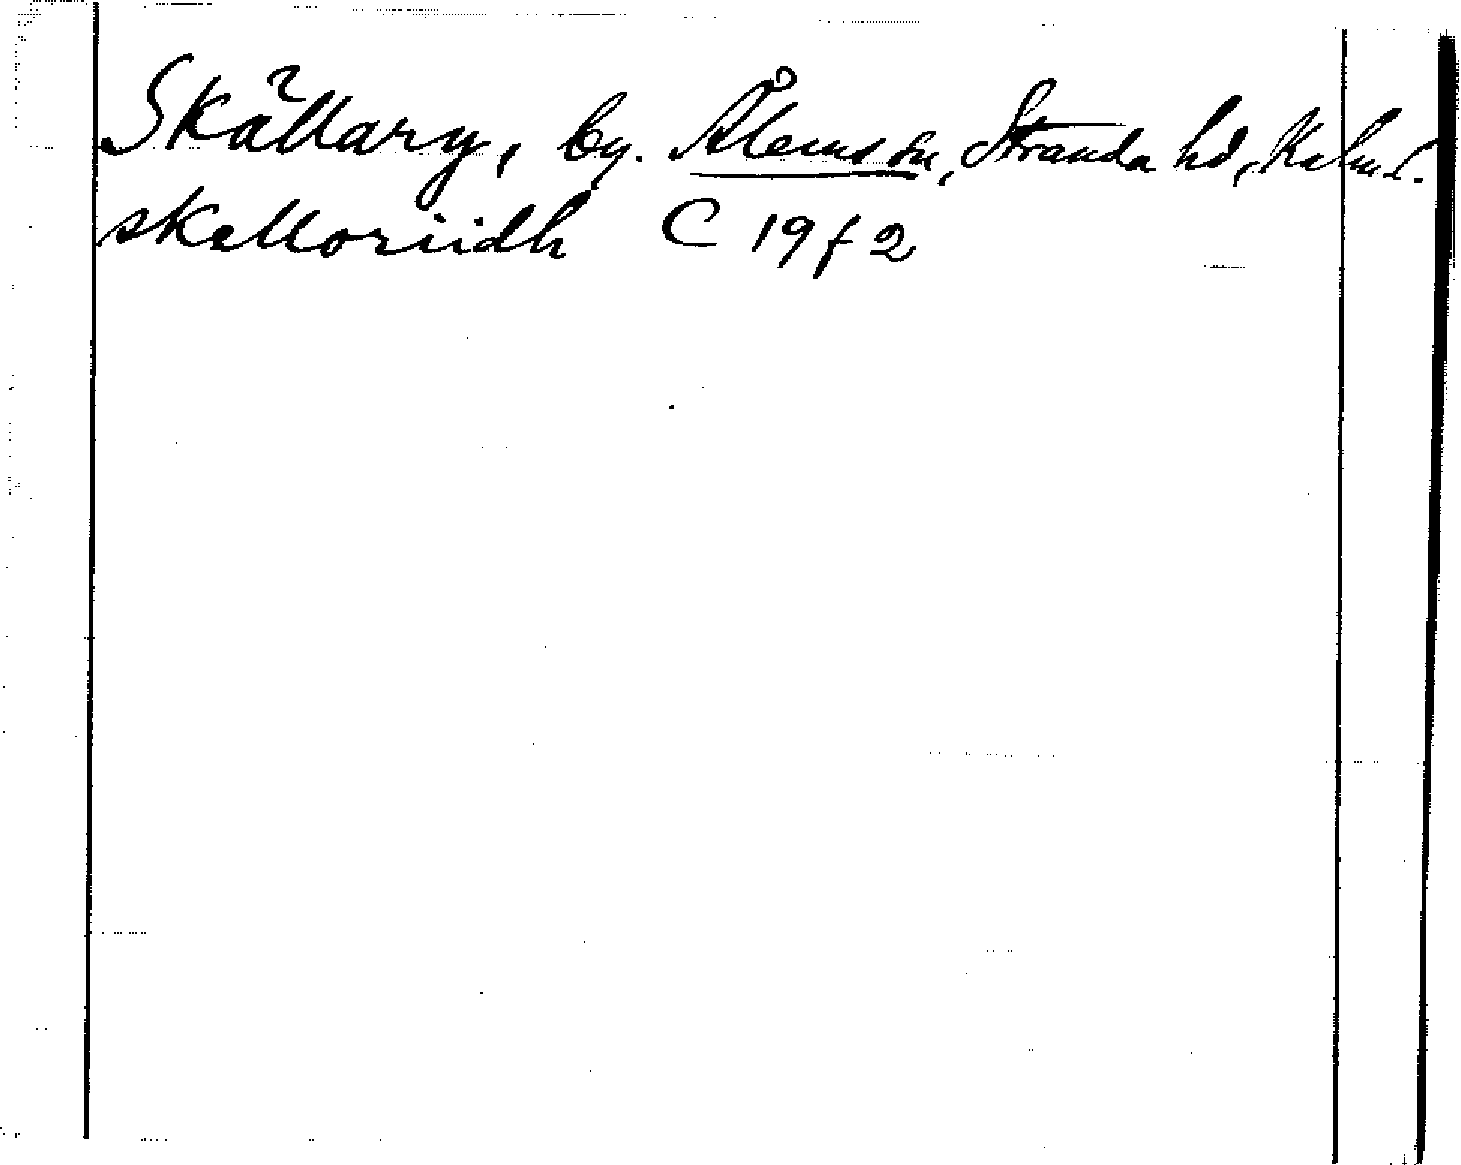 Skällary, by. Ålems sn, Stranda hd, Kalm. l.
skalloriidh C 19 f 2